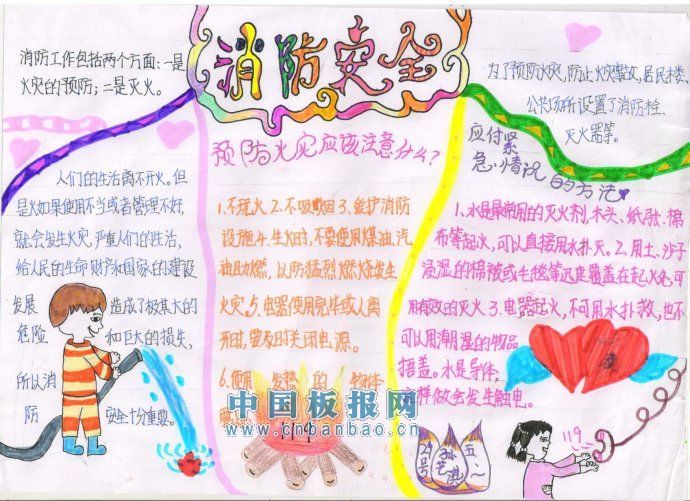 消防安全
消防工作包括两个方面:一是
火灾的预防;二是灭火。
人们的生活离不开火。但
是火如果使用不当或者管理不好,
就会发生火灾,严重人们的生活,
给人民的生命财产和国家的建设
发展 造成了极其大的
危险 和巨大的损失,
所以消
防 安全十分重要。
预防火灾应该注意什么?
1.不玩火 2.不吸烟 3.爱护消防
设施 4.生火时,不要使用煤油,汽
油助燃,以防猛烈燃烧发生
火灾 5.电器使用完毕或人离
开时,要及时关闭电源。
6.使用 发热 的 物体
为了预防火灾,防止火灾事故,居民楼、
公共场所设置了消防栓、
灭火器等。
应付紧
急情况的方法
1.水是最常用的灭火剂,木头、纸张、棉
布等起火,可以直接用水扑灭。2.用土、沙子
浸湿的棉被或毛毯等迅速覆盖在起火处,可
有效的灭火 3.电器起火,不可用水扑救,也不
可以用潮湿的物品
捂盖。水是导体,
这样做会发生触电。
中国板报网
www.cnbanbao.cn
119
五一
29号